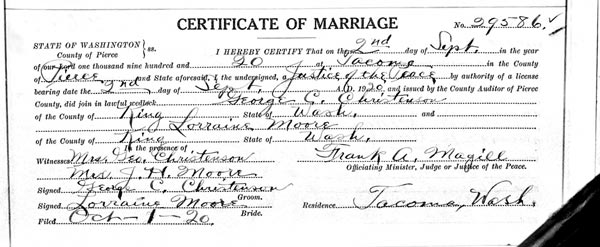 CERTIFICATE OF MARRIAGE
No. 29586
STATE OF WASHINGTON } ss.
County of Pierce
I HEREBY CERTIFY That on the 2nd day of Sept. in the year
of our Lord one thousand nine hundred and 20 at Tacoma in the County
of Pierce and State aforesaid, I the undersigned, a Justice of the Peace by authority of a license
bearing date the 2nd day of Sept. A.D. 1920 and issued by the County Auditor of Pierce
County, did join in lawful wedlock George C. Christenson
of the County of King State of Wash. and
Lorraine Moore
of the County of King State of Wash.
in the presence of
Witnesses Mrs. Geo. Christenson
Mrs. J. H. Moore
Frank A. Magill
Officiating Minister, Judge or Justice of the Peace.
Signed George C. Christenson
Groom.
Signed Lorraine Moore
Bride.
Residence Tacoma, Wash.
Filed Oct-1-20